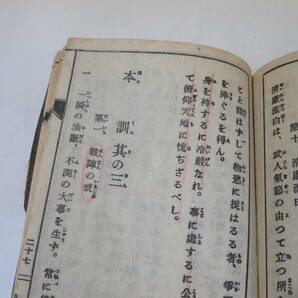 第十　清廉潔白
清廉潔白は、武人氣節の由つて立つ所
こと能はずして物慾に捉はるる者、爭
を捧ぐるを得ん。
身を持するに冷嚴なれ。事に處するに公
て俯仰天地に愧ぢざるべし。
本訓其の三
第一　戰陣の戒
一　一瞬の油斷、不測の大事を生ず。常に備
二十七